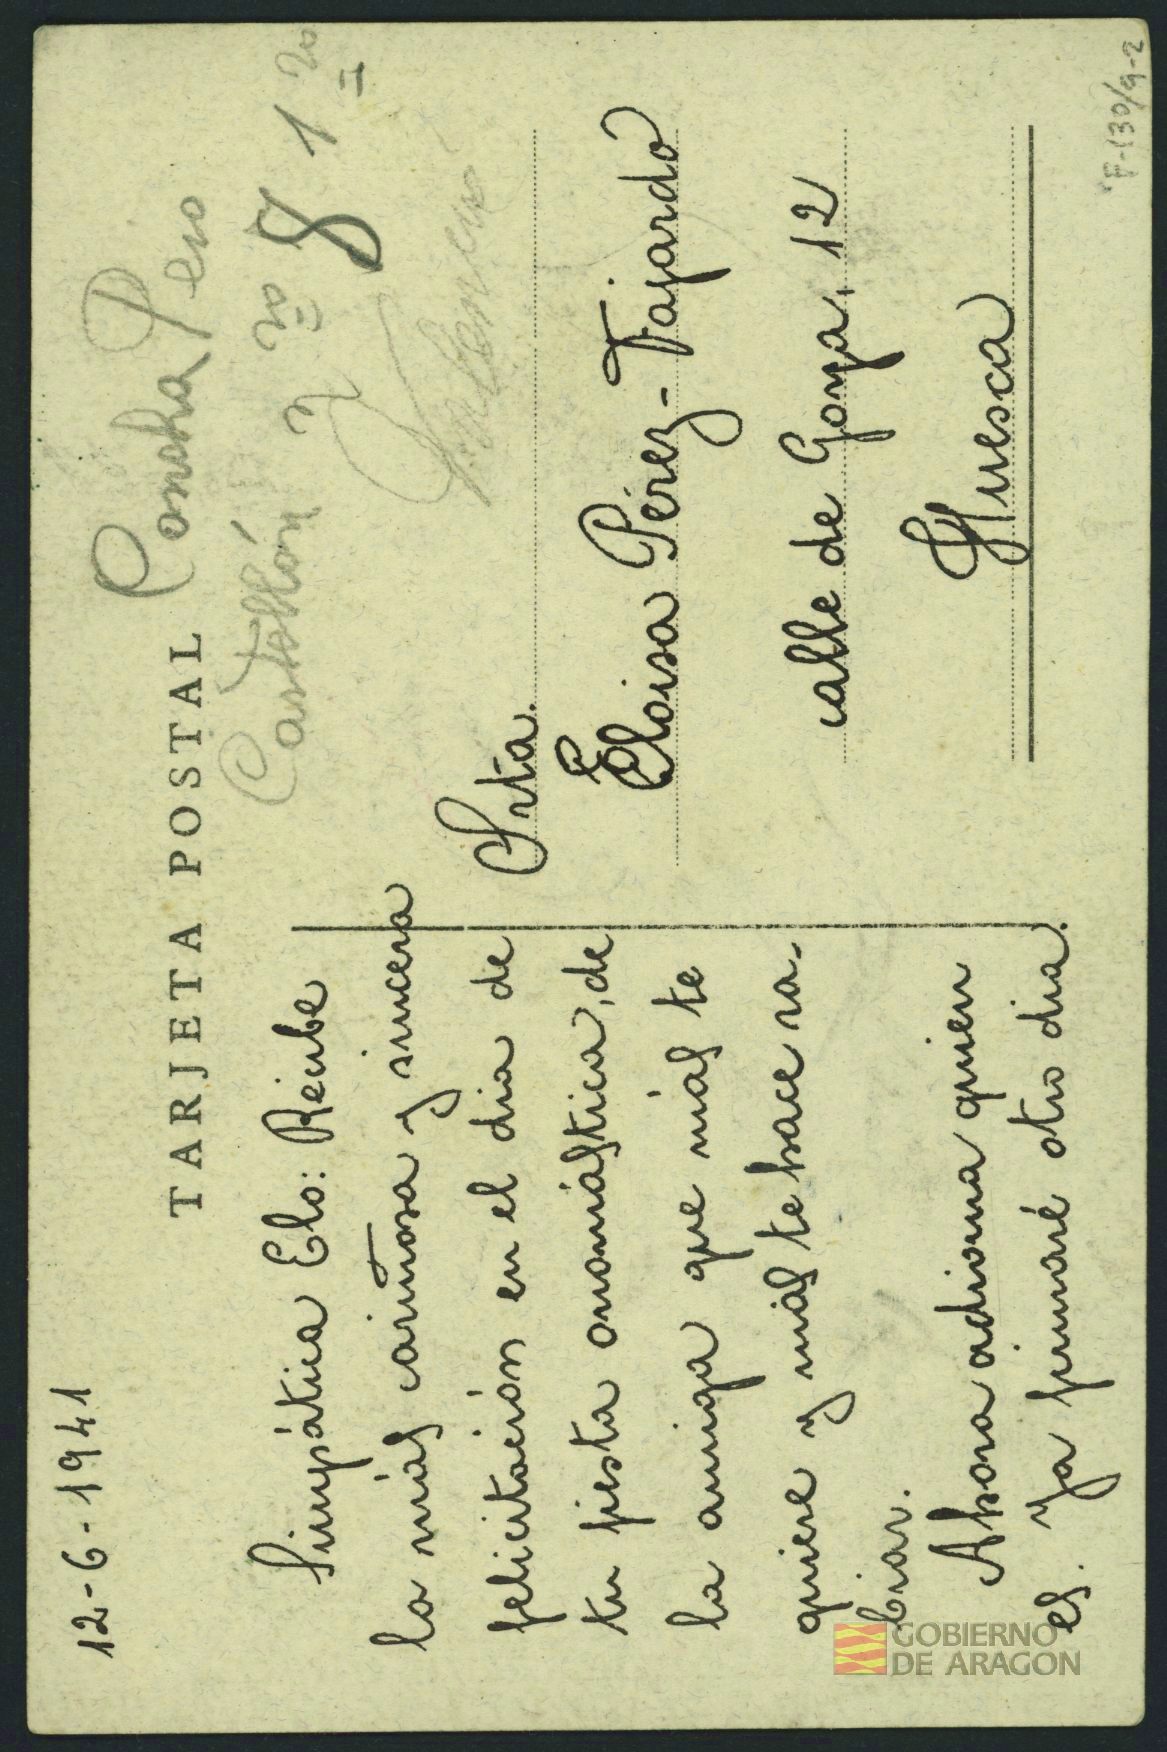 12-6-1941
TARJETA POSTAL
Simpática Elo: Recibe
la más cariñosa y sincera
felicitación en el dia de
tu fiesta onomástica, de
la amiga que más te
quiere y más te hace ra-
biar.
Ahora adivina quien
es. ya firmaré otro dia.
Castellón
8 1
Srta.
Eloisa Pérez-Fajardo
calle de Goya, 12
Huesca
F-130/9-2
GOBIERNO
DE ARAGON